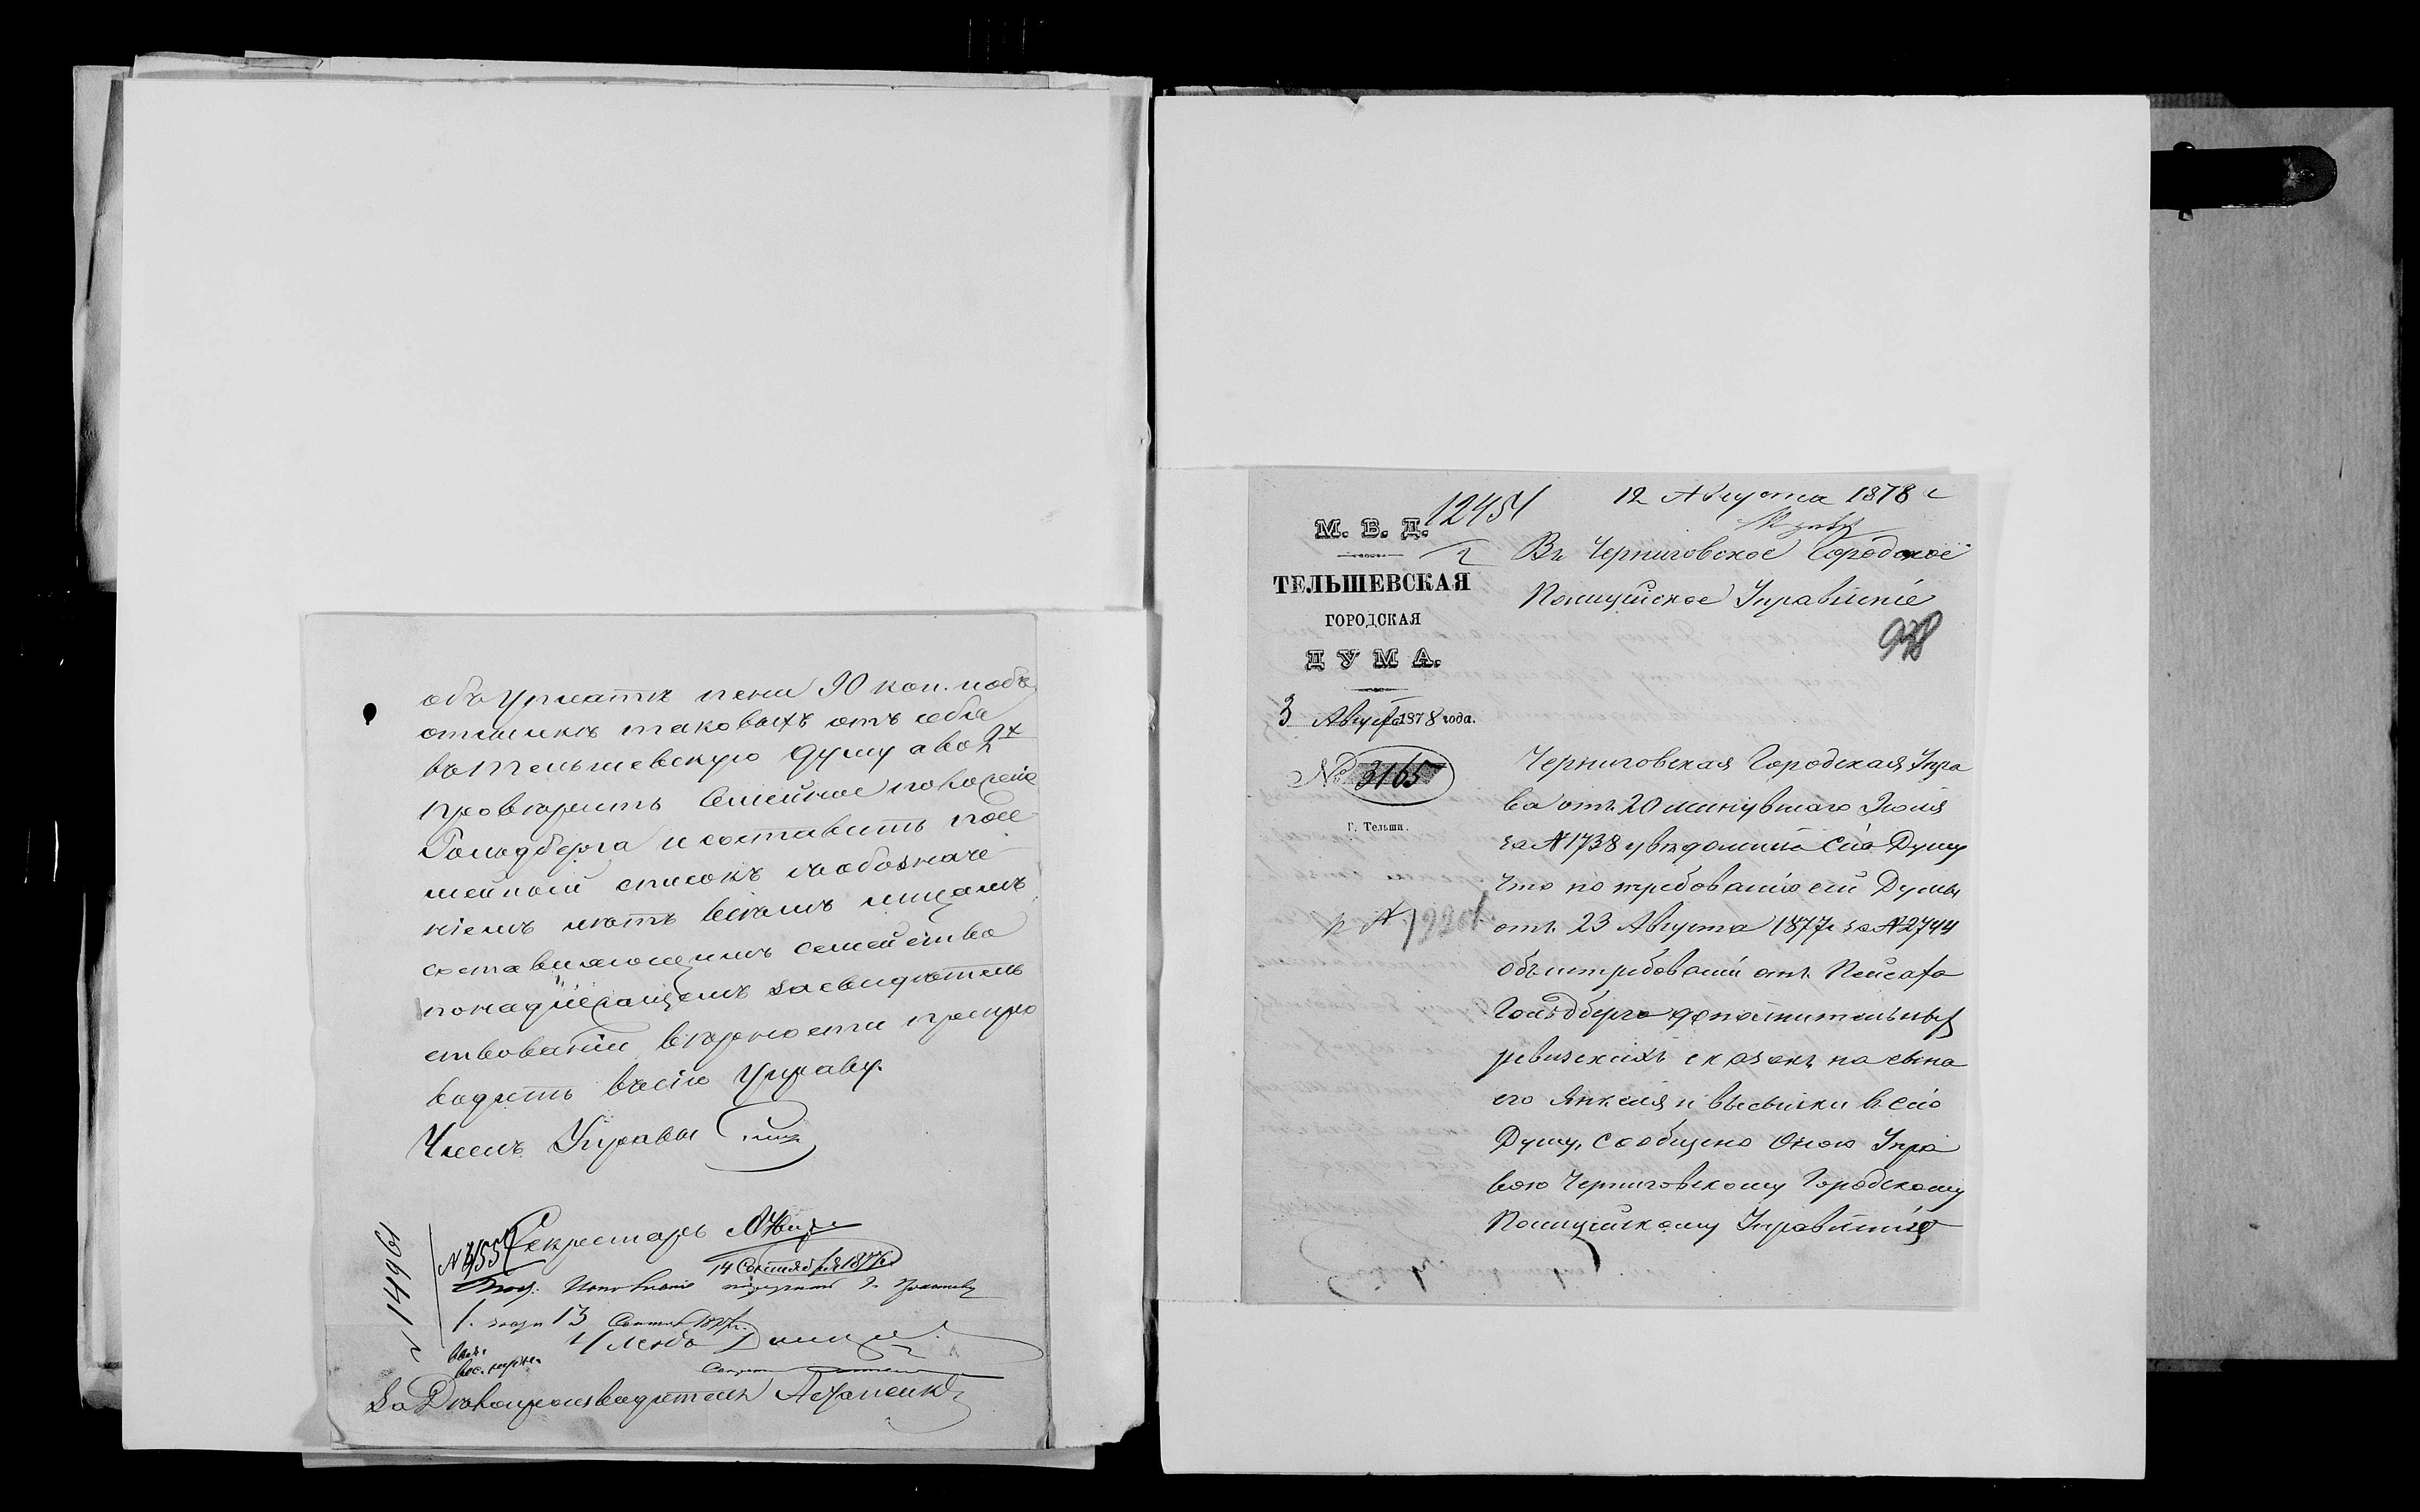 объ уплатѣ пени 90 коп. побъ
отсылкѣ таковыхъ отъ себя
въ Тельшевскую думу а во 2х
провѣрить Семейное положеніе
Гольдберга и составить посе
мейной списокъ съ обозначе
ніемъ лѣтъ всѣмъ лицамъ
составляющимъ семейство
понадлежащемъ засвидѣтель
ствованіи вѣрности препро
водить въ сію Управу.
Членъ Управы
Секретарь
№ 3155
14 Сентября 1877
13
Членъ
За Дѣлопроизводителя
14961
12454
12 Августа 1878 г
М. В. Д.
ТЕЛЬШЕВСКАЯ
ГОРОДСКАЯ
ДУМА.
3 Августа 1878 года.
№ 3165
Г. Тельши.
Въ Черниговское Городское
Полицейское Управленіе
938
Черниговская Городская Упра
ва отъ 20 минувшаго Іюля
за № 1738 увѣдомила Сію Думу
что по требованію сей Думы
отъ 23 Августа 1877 г за № 2744
объ истребованіи отъ Пейсаха
Гольдберга дополнительныхъ
ревизскихъ сказокъ на сына
его Янкеля и высылки въ сію
Думу, сообщено Оною Упра
вою Черниговскому Городскому
Полицейскому Управленію